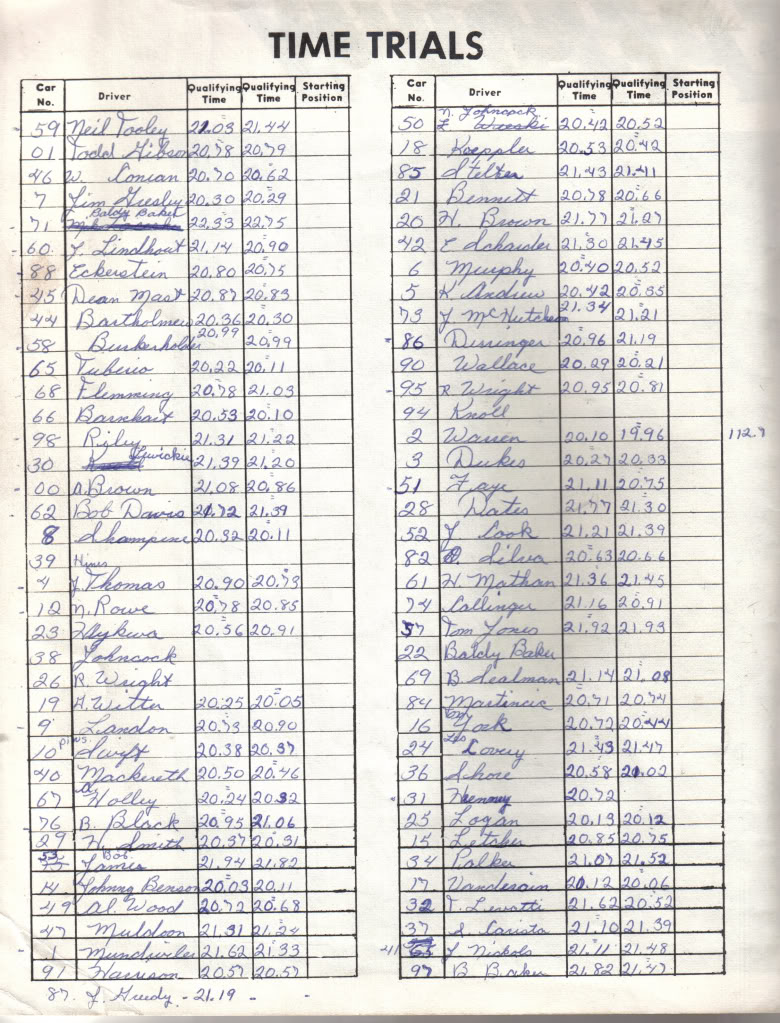 TIME TRIALS
Car No. Driver Qualifying Time Qualifying Time Starting Position
59 Neil Tooley 21.03 21.44
01 Todd Gibson 20.78 20.79
46 W. Conian 20.70 20.62
7 Jim Gresley 20.30 20.29
71 Baldy Baker 22.33 22.75
60 J. Lindhout 21.14 20.90
88 Eckerstein 20.80 20.75
45 Dean Mast 20.87 20.83
44 Bartholmew 20.36 20.30
58 Burkerholder 20.99 20.99
65 Tuberio 20.22 20.11
68 Flemming 20.78 21.03
66 Barnhart 20.53 20.10
98 Riley 21.31 21.22
30 21.39 21.20
00 D. Brown 21.08 20.86
62 Bob Davis 21.72 21.39
8 Shampine 20.32 20.11
39 Hines
4 J. Thomas 20.90 20.73
12 N. Rowe 20.78 20.85
23 20.56 20.91
38 Johncock
26 R. Wright
19 H. Witter 20.25 20.05
9 Landon 20.73 20.90
10 Swift 20.38 20.37
40 Mackereth 20.50 20.46
67 Holley 20.24 20.32
76 B. Black 20.95 21.06
29 N. Smith 20.37 20.31
55 Bob James 21.94 21.82
14 Johnny Benson 20.03 20.11
49 Al. Wood 20.72 20.68
47 Muldoon 21.31 21.24
1 Mundwiler 21.62 21.33
91 Harrison 20.57 20.57
87. J. Grudy - 21.19 - -
Car No. Driver Qualifying Time Qualifying Time Starting Position
50 N. Johncock 20.42 20.52
18 Koeppler 20.53 20.42
85 Stelter 21.43 21.41
21 Bennett 20.78 20.66
20 H. Brown 21.77 21.27
42 E Schaider 21.30 21.45
6 Murphy 20.40 20.52
5 K. Andrew 20.42 20.35
73 J. McHutcheon 21.34 21.21
86 Deringer 20.96 21.19
90 Wallace 20.29 20.21
95 R Wright 20.95 20.81
94 Knoll
2 Warren 20.10 19.96 112.9
3 Dukes 20.27 20.33
51 Faye 21.11 20.75
28 Dates 21.77 21.30
52 J Cook 21.21 21.39
82 Silva 20.63 20.66
61 H. Mathan 21.36 21.45
74 Callinger 21.16 20.91
57 Tom Jones 21.92 21.93
22 Baldy Baker
69 B. Sealman 21.14 21.08
84 Martincic 20.71 20.74
16 York 20.72 20.44
24 Lovery 21.43 21.47
36 Shore 20.58 21.02
31 Henney 20.72
25 Logan 20.13 20.12
15 Letcher 20.85 20.75
34 Palker 21.07 21.52
17 Vandesain 20.12 20.06
32 T. Levatti 21.62 20.52
37 S. Carista 21.10 21.39
41 J Nickols 21.11 21.48
97 B Baker 21.82 21.47